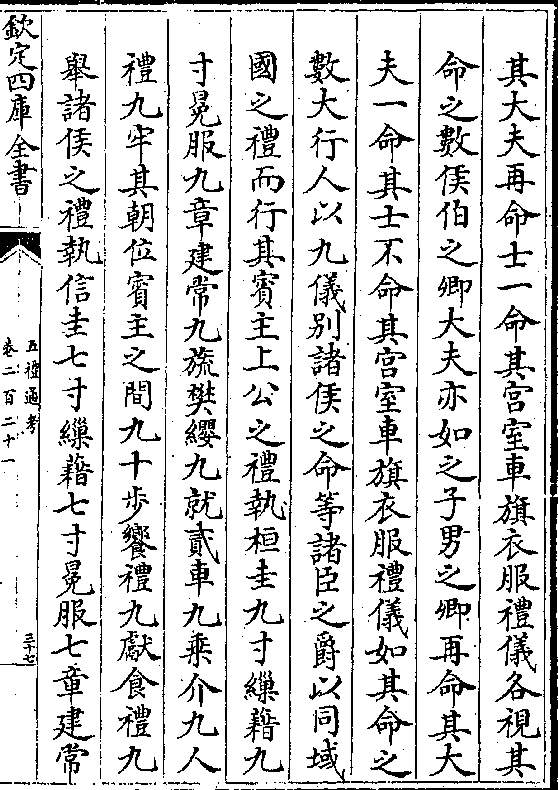 其大夫再命士一命其宫室車旗衣服禮儀各視其
命之數侯伯之卿大夫亦如之子男之卿再命其大
夫一命其士不命其宫室車旗衣服禮儀如其命之
數大行人以九儀别諸侯之命等諸臣之爵以同域
國之禮而行其賓主上公之禮執桓圭九寸繅藉九
寸冕服九章建常九斿樊纓九就貳車九乗介九人
禮九牢其朝位賓主之間九十步饗禮九獻食禮九
舉諸侯之禮執信圭七寸繅藉七寸冕服七章建常
欽定四庫全書
五禮通考
卷二百二十一
三十七